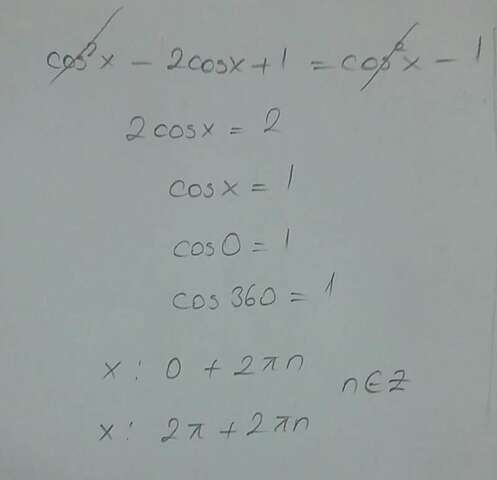 cos²x - 2cosx + 1 = cos²x - 1
2cosx = 2
cosx = 1
cos0 = 1
cos360 = 1
x: 0 + 2πn
n∈Z
x: 2π + 2πn